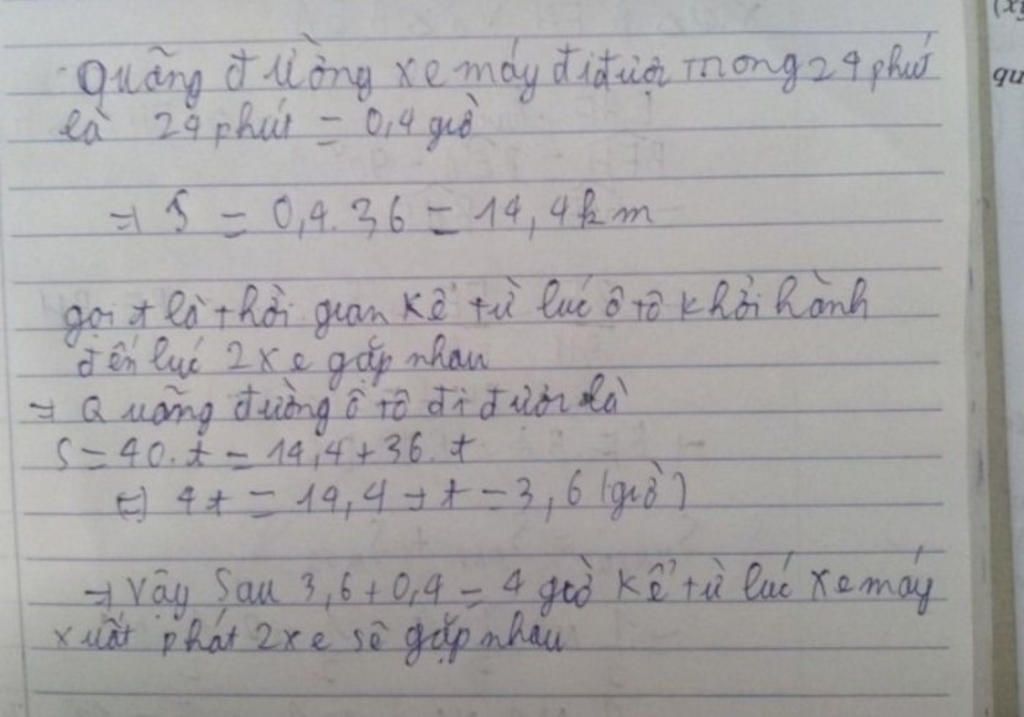 Quãng đường xe máy đi được trong 24 phút
là 24 phút = 0,4 giờ
=> S = 0,4.36 = 14,4km
gọi t là thời gian kể từ lúc ô tô khởi hành
đến lúc 2 xe gặp nhau
=> Quãng đường ô tô đi được là
S = 40.t = 14,4 + 36.t
<=> 4t = 14,4 -> t = 3,6 (giờ)
=> Vậy sau 3,6 + 0,4 = 4 giờ kể từ lúc xe máy
xuất phát 2 xe sẽ gặp nhau
qu